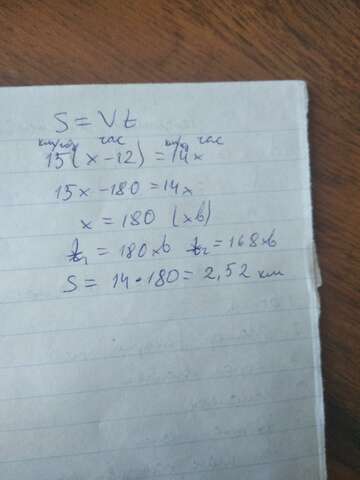 S = Vt
км/год час км/г час
15(x-12) = 14x
15x - 180 = 14x
x = 180 (хв)
t₁ = 180хв t₂ = 168хв
S = 14 · 180 = 2,52 км